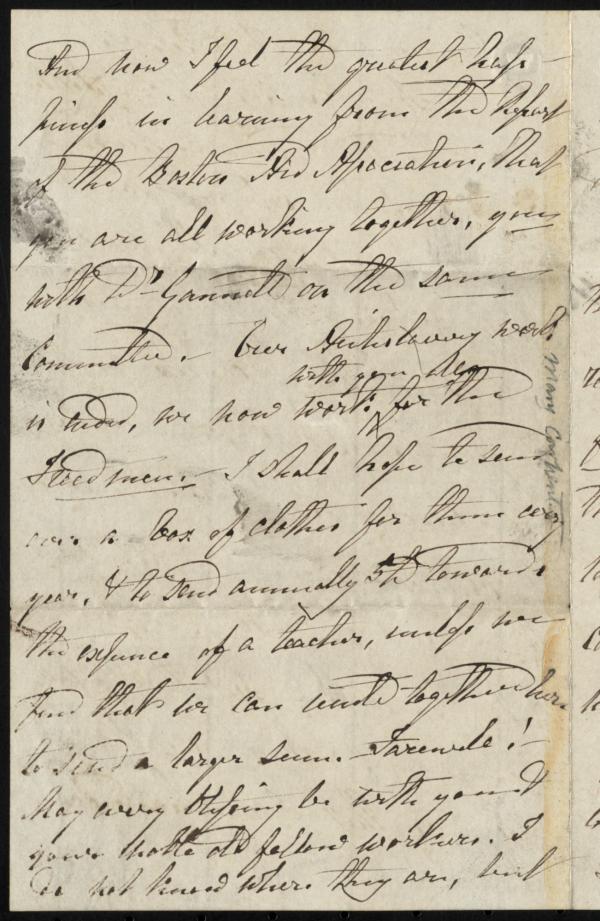 And now I feel the greatest hap-
piness in learning from the Report
of the Boston Aid Association, that
you are all working together, you
with Dr Gannett on the same
Committee. - Our Antislavery work
with you also
is ended, we now work for the
Freedmen. - I shall hope to send
over a box of clothes for them every
year, & to send annually 5£ towards
the expence of a teacher, unless we
find that we can unite together here
to send a larger sum. Farewell! -
May every blessing be with you &
your noble old fellow workers. I
do not know where they are, but
Mary Carpenter